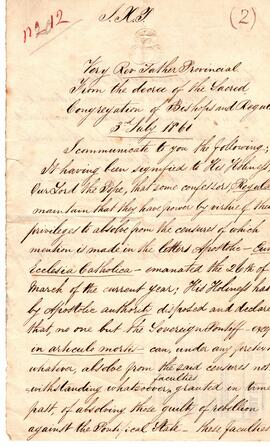 (2)
Very Rev. Father Provincial
From the decree of the Sacred
Congregation of Bishops and Regul
3rd July 1861
I communicate to you the following;
It having been signified to His Holiness,
Our Lord the Pope, that some confessors Regula
maintain that they have power by virtue of their
privileges to absolve from the censures of which
mention is made in the letters Apostolic -
Ecclesia Catholica - emanated the 26th of
March of the current year; His Holiness has
by Apostolic authority disposed and declare
that, no one but the Sovereign Pontiff -
in articulo mortis - can, under any pretext
whatever, absolve from the said censures not
withstanding whatsoever faculties granted in time
past, of absolving those guilty of rebellion
against the Pontifical State - these faculties